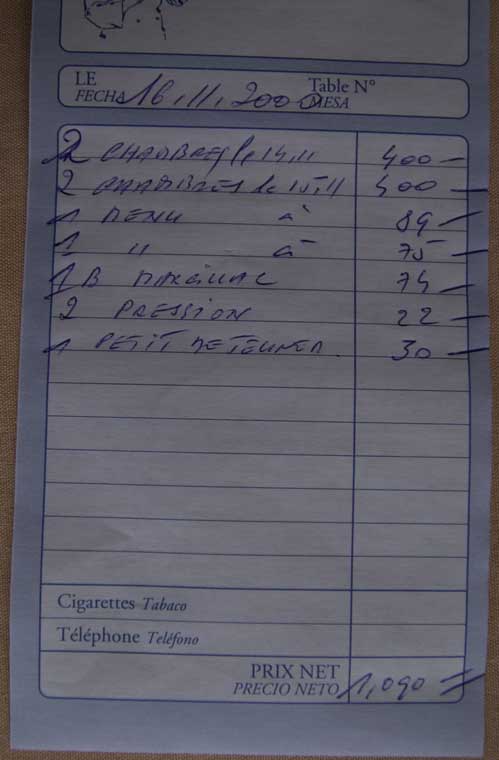 LE Table N°
FECHA 16.11.2000 MESA
2 CHAMBRES le 14.11 400 —
2 CHAMBRES le 15.11 400 —
1 MENU à 89 —
1 " à 75 —
1 B 74 —
2 PRESSION 22 —
1 PETIT DEJEUNER. 30 —
Cigarettes Tabaco
Téléphone Teléfono
PRIX NET
PRECIO NETO 1,090 =